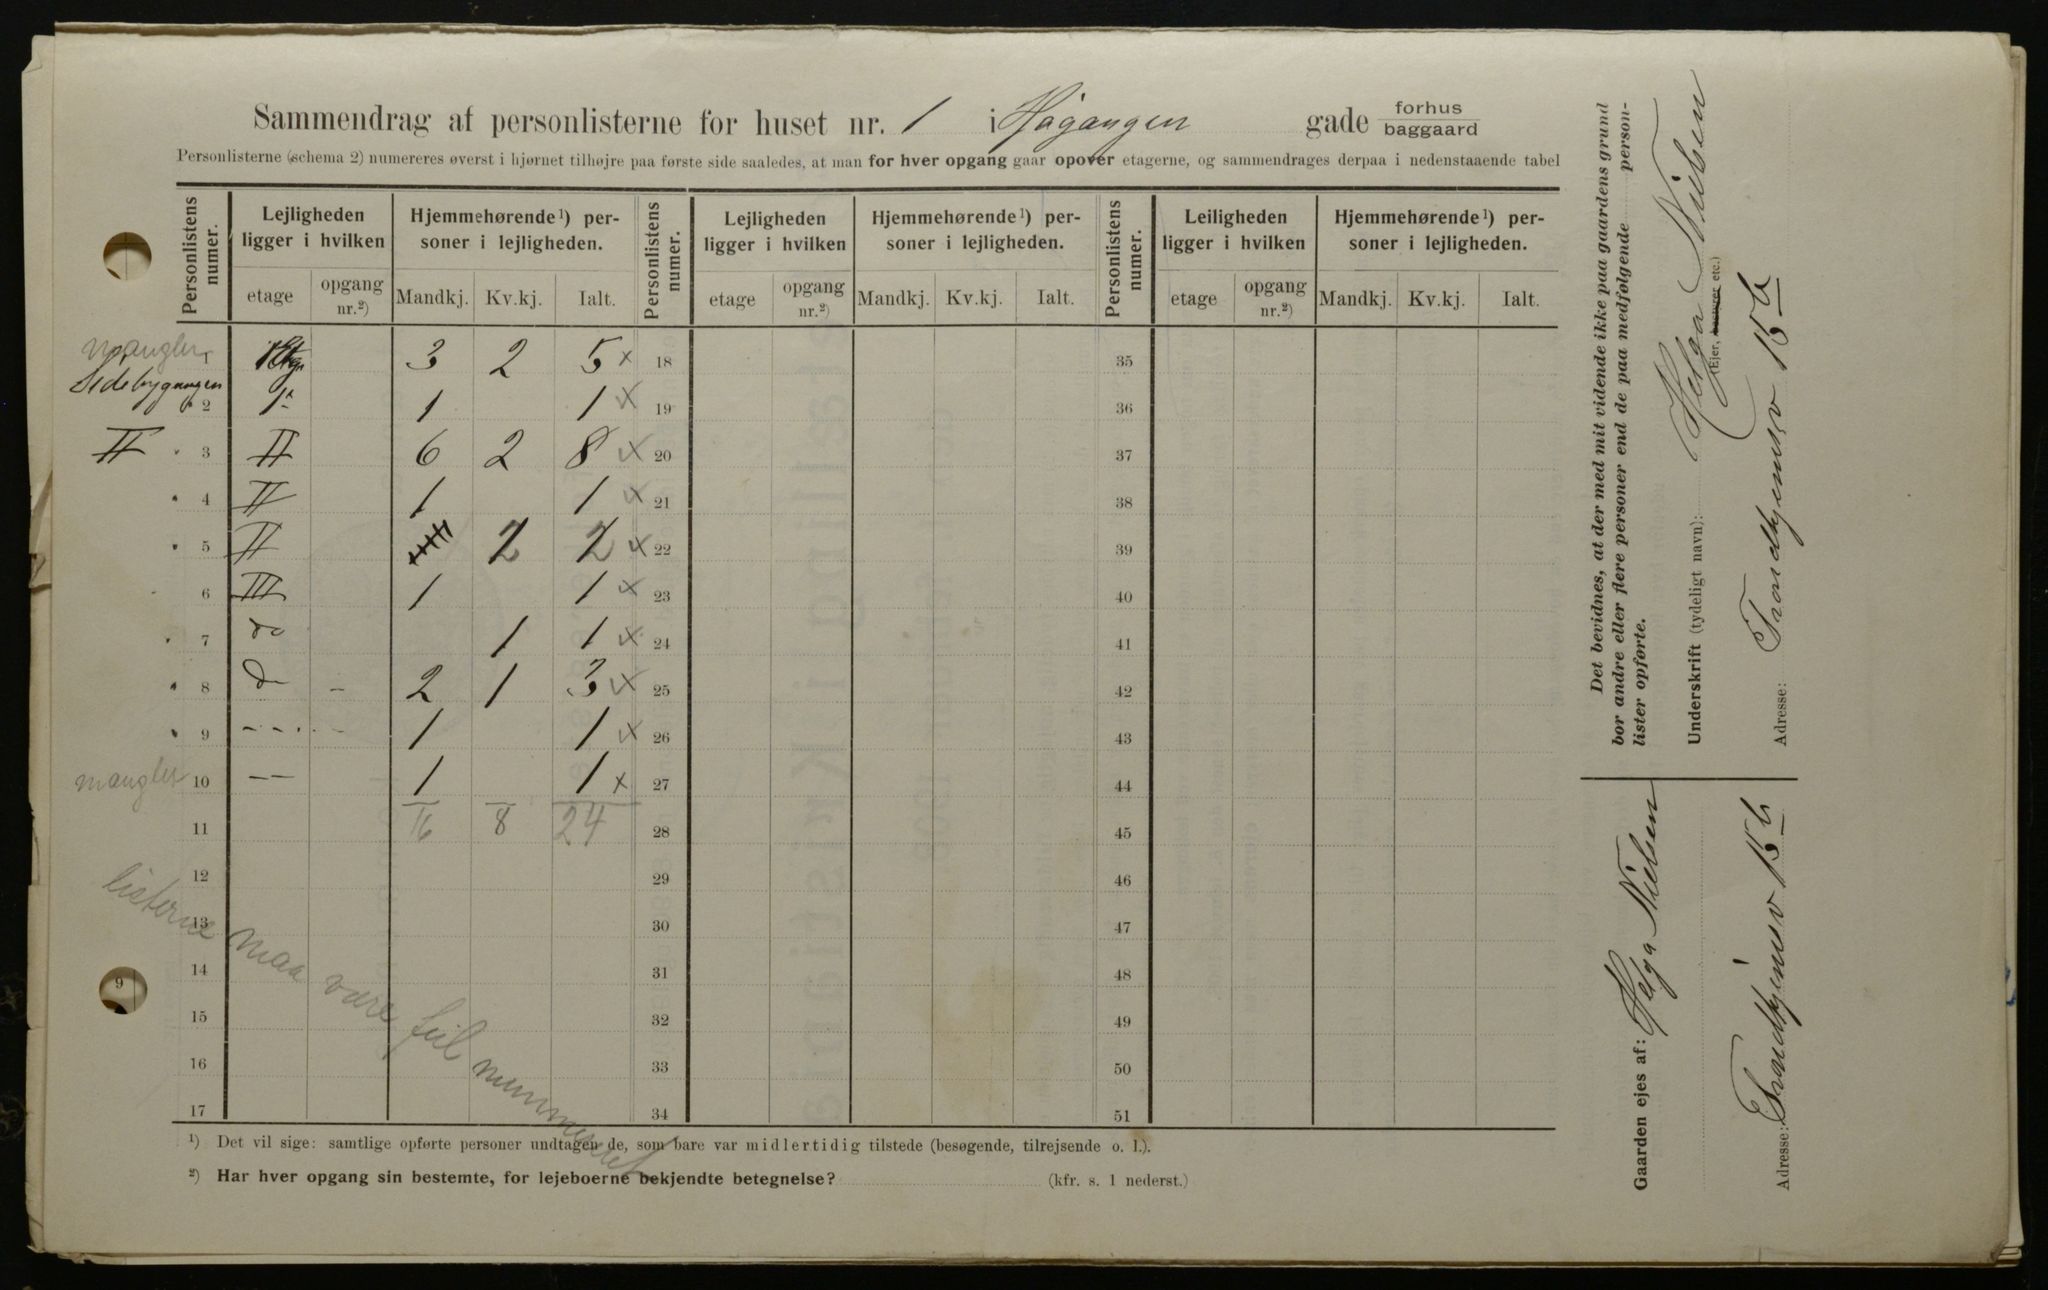 Sammendrag af personlisterne for huset nr. 1 i Høgangen gade forhus
baggaard
Personlisterne (schema 2) numereres øverst i hjørnet tilhøjre paa første side saaledes, at man for hver opgang gaar opover etagerne, og sammendrages derpaa i nedenstaaende tabel
Personlistens numer. Lejligheden ligger i hvilken Hjemmehørende ¹) personer i lejligheden. Personlistens numer. Lejligheden ligger i hvilken Hjemmehørende ¹) personer i lejligheden. Personlistens numer. Leiligheden ligger i hvilken Hjemmehørende ¹) personer i lejligheden.
etage opgang nr.²) Mandkj. Kv.kj. Ialt. etage opgang nr.²) Mandkj. Kv.kj. Ialt. etage opgang nr.²) Mandkj. Kv.kj. Ialt.
mangler 1 1 Etg 3 2 5 x 18 35
Sidebygningen
2 1 1 1 x 19 36
II 3 II 6 2 8 x 20 37
4 II 1 1 x 21 38
5 II 2 2 x 22 39
6 III 1 1 x 23 40
7 do 1 1 x 24 41
8 do - 2 1 3 x 25 42
9 - - - - 1 1 x 26 43
mangler 10 - - 1 1 x 27 44
11 16 8 24 28 45
12 29 46
13 30 47
14 31 48
15 32 49
16 33 50
17 34 51
listerne maa være feil nummereret
¹) Det vil sige: samtlige opførte personer undtagen de, som bare var midlertidig tilstede (besøgende, tilrejsende o. l.).
²) Har hver opgang sin bestemte, for lejeboerne bekjendte betegnelse? (kfr. s. 1 nederst.)
Det bevidnes, at der med mit vidende ikke paa gaardens grund
bor andre eller flere personer end de paa medfølgende person-
lister opførte.
Underskrift (tydeligt navn): Helga Nielsen
(Ejer, bestyrer etc.)
Adresse: Trondhjemsv 15 b
Gaarden ejes af: Helga Nielsen
Adresse: Trondhjemsv 15 b
9